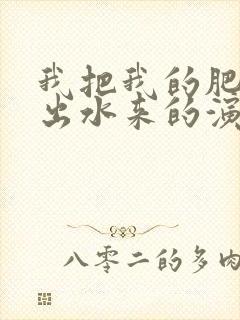 我把我的肥
出水来的演
八零二的多肉